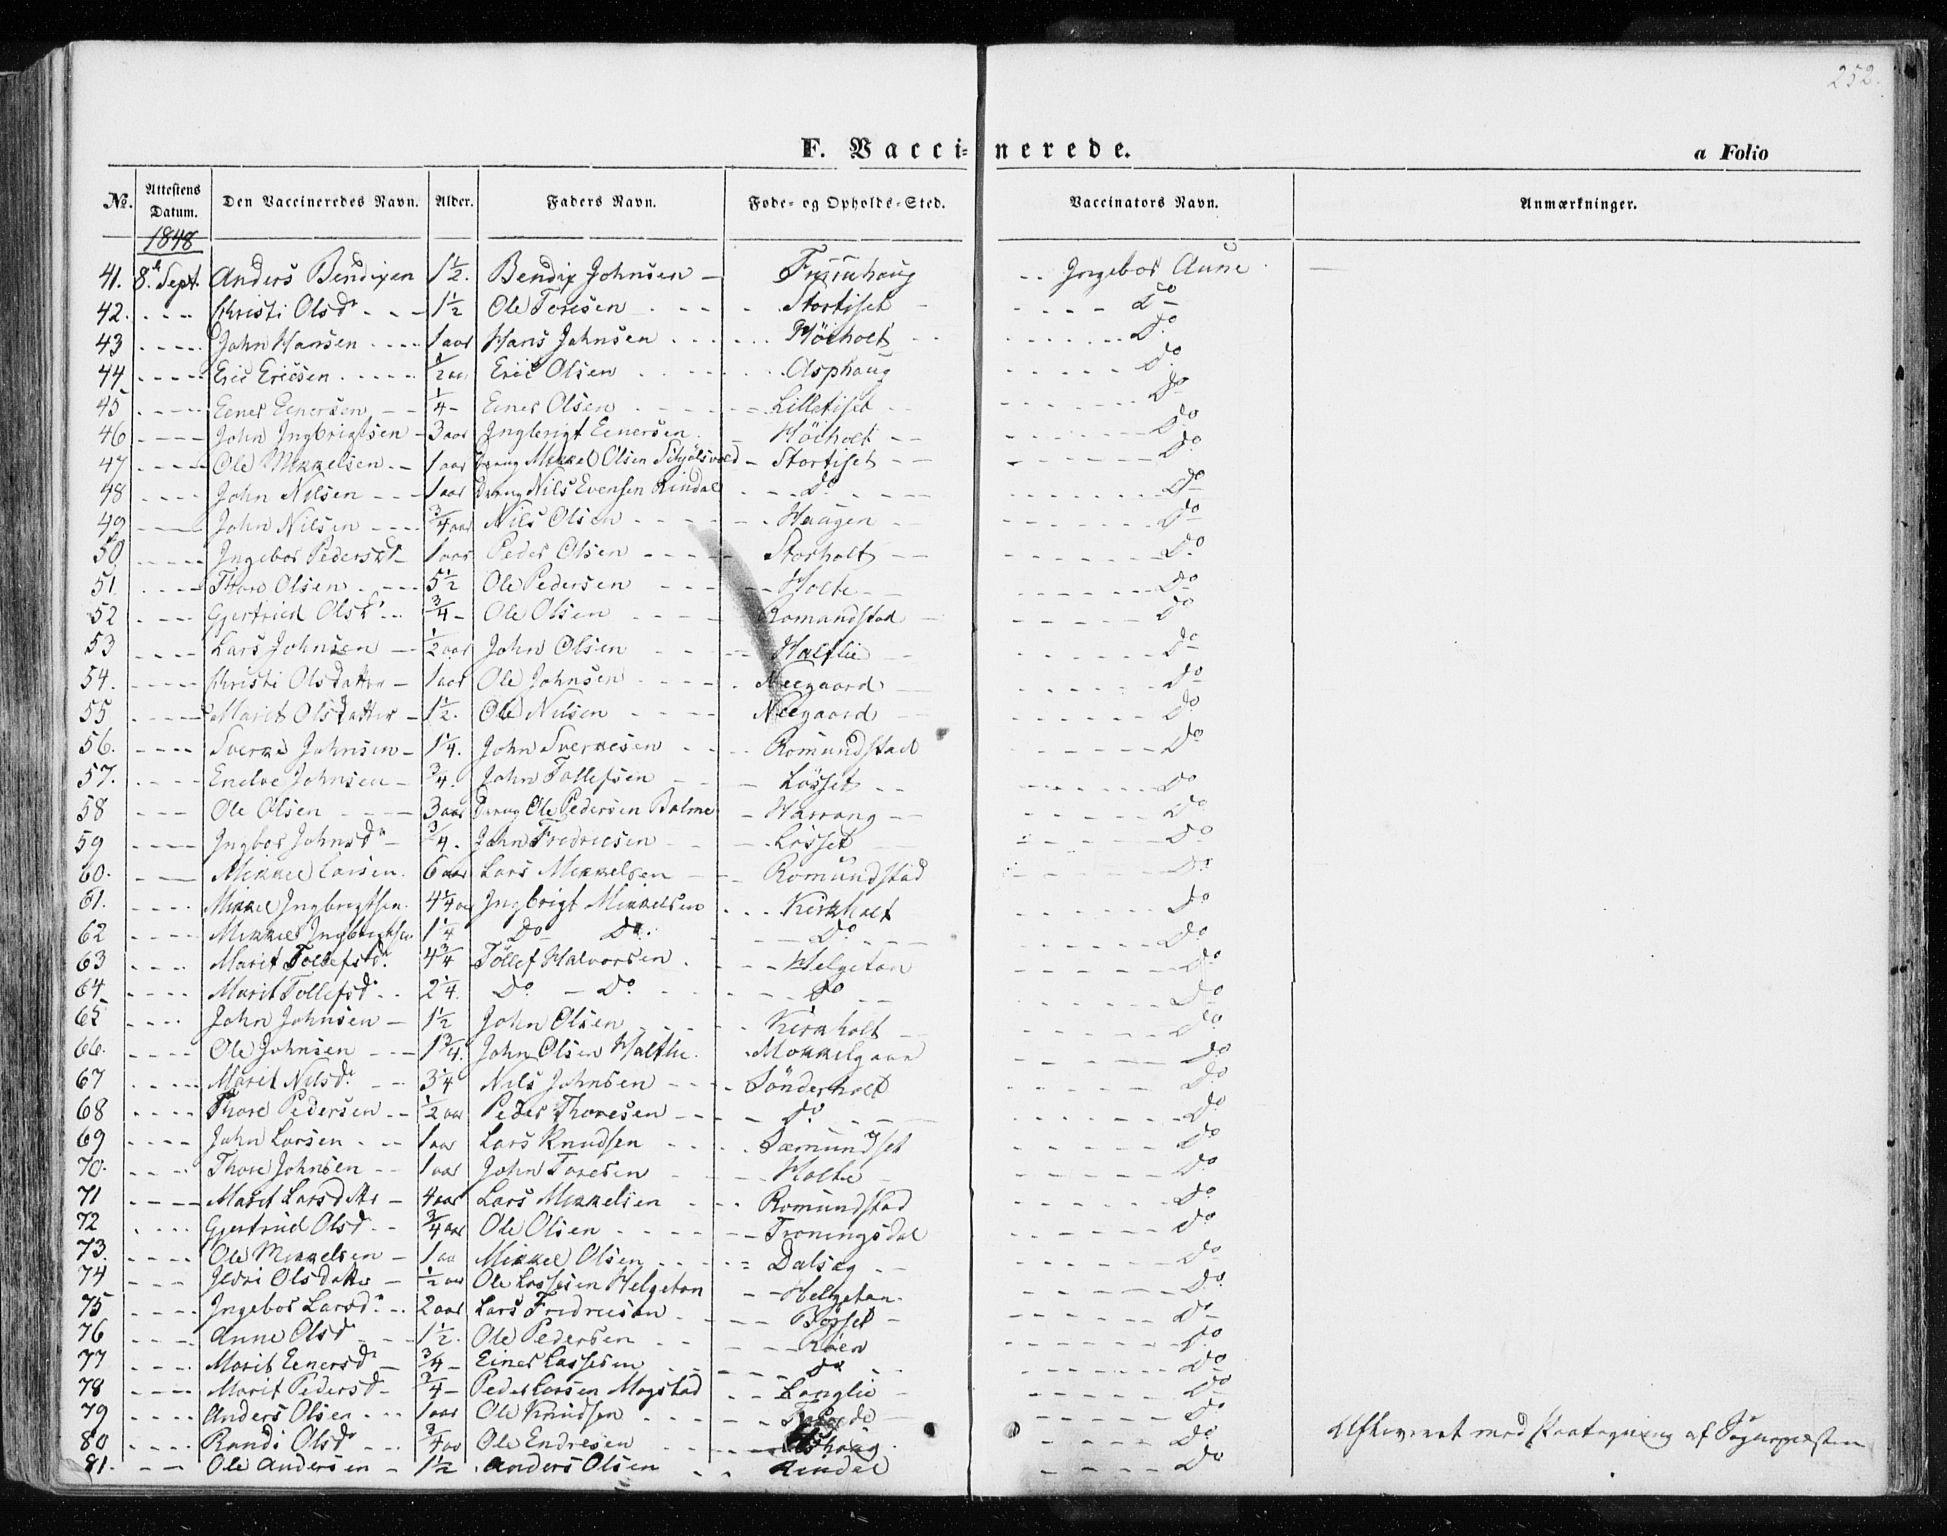 252.
F. Vaccinerede.
a Folio
№. Attestens Datum. Den Vaccineredes Navn. Alder. Faders Navn. Føde- og Opholds-Sted. Vaccinators Navn. Anmærkninger.
1848
41. 8de Sept. Anders Bendixen 1½. Bendix Johnsen Jngebor Aune
42. Christi Olsdr 1½ Ole Toresen Stortiset Do
43 John Hansen 1 aar Hans Johnsen Höiholt Do
44 Eric Ericsen ½ aar Eric Olsen Asphaug Do
45 Eener Eenersen ¼ Eener Olsen Lilletiset Do
46 John Jngbrigtsen 3 aar Jngbrigt Eenersen Höiholt Do
47 Ole Mikkelsen 1 aar Mikkel Olsen Stortiset Do
48 John Nilsen 1 aar Nils Evensen Rindal Do Do
49 John Nilsen ¾ aar Nils Olsen Haugen Do
50 Jngebor Pedersdr 1 aar Peder Olsen Storholt Do
51. Thore Olsen 5½ Ole Pedersen Holte Do
52 Gjertrued Olsdr ¾ Ole Olsen Romundstad Do
53 Lars Johnsen ½ aar John Olsen Haltlie Do
54. Christi Olsdatter 1 aar Ole Johnsen Neegaard Do
55 Marit Olsdatter 1½. Ole Nilsen Neegaard Do
56. Sverke Johnsen 1¼. John Sverkesen Romundstad Do
57. Johnsen ¾. John Tollefsen Lösset Do
58 Ole Olsen 3 aar Ole Pedersen Bolme Harrang Do
59 Jngbor Johnsdr ¾. John Fredricsen Lösset Do
60. Mikkel Larsen 6 aar Lars Mikkelsen Romundstad Do
61. Mikkel Jngbrigtsen 4¼ aar Jngbrigt Mikkelsen Kirkholt Do
62 Mikkel Jngbrigtsen 1¼ Do Do Do Do
63 Marit Tollefsdr 4¾ Töllef Halvorsen Helgetan Do
64 Marit Tollefsdr 2¼. Do Do Do Do
65 John Johnsen 1½ John Olsen Kirkholt Do
66. Ole Johnsen 1¾. John Olsen Haltlie Mokkelgaar Do
67 Marit Nilsdr 3¼ Nils Johnsen Sönderholt Do
68 Thore Pedersen ½ aar Peder Thoresen Do Do
69 John Larsen 1 aar Lars Knudsen Sæmundset Do
70. Thore Johnsen 1 aar John Toresen Holte Do
71 Marit Larsdttr 4 aar Lars Mikkelsen Romundstad Do
72 Gjertrued Olsdr ¾ aar Ole Olsen Troningsdal Do
73. Ole Mikkelsen 1 aar Mikkel Olsen Dalsæg Do
74 Olsdatter ½ aar Ole Lassesen Helgetan Helgetan Do
75 Jngebor Larsdr 2 aar Lars Fredricsen Bösset Do
76 Anne Olsdr 1½. Ole Pedersen Röen Do
77 Marit Eenersdr ¾ Einer Lassesen Do Do
78 Marit Pedersdr ¾ Peder Larsen Mogstad Langlie Do
79 Anders Olsen 1 aar Ole Knudsen Do
80 Randi Olsdr ¾ aar Ole Endresen Do
81. Ole Andersen 1½ Anders Olsen Rindal Do